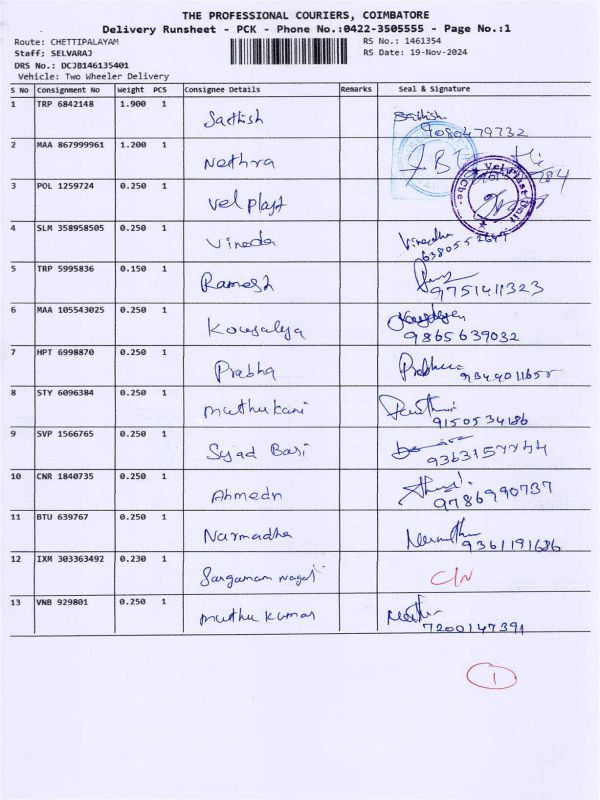 THE PROFESSIONAL COURIERS, COIMBATORE
Delivery Runsheet - PCK - Phone No.:0422-3505555 - Page No.:1
Route: CHETTIPALAYAM RS No.: 1461354
Staff; SELVARAJ RS Date: 19-Nov-2024
DRS No.: DCJB146135401
Vehicle: Two Wheeler Delivery
S No Consignment No Weight PCS Consignee Details Remarks Seal & Signature
1 TRP 6842148 1.900 1 Sathish Sathish
9080479732
2 MAA 867999961 1.200 1 Nethra
3 POL 1259724 0.250 1 Vel plast
4 SLM 358958505 0.250 1 Vinoda
5 TRP 5995836 0.150 1 Ramesh
9751411323
6 MAA 105543025 0.250 1 Kousalya
9865639032
7 HPT 6998870 0.250 1 Prabha
8 STY 6096384 0.250 1 muthukani
9150534186
9 SVP 1566765 0.250 1 Syad Basi
10 CNR 1840735 0.250 1
9786990737
11 BTU 639767 0.250 1 Narmadha
9361191686
12 IXM 303363492 0.230 1 C/N
13 VNB 929801 0.250 1 muthu kumar
7200147391
1